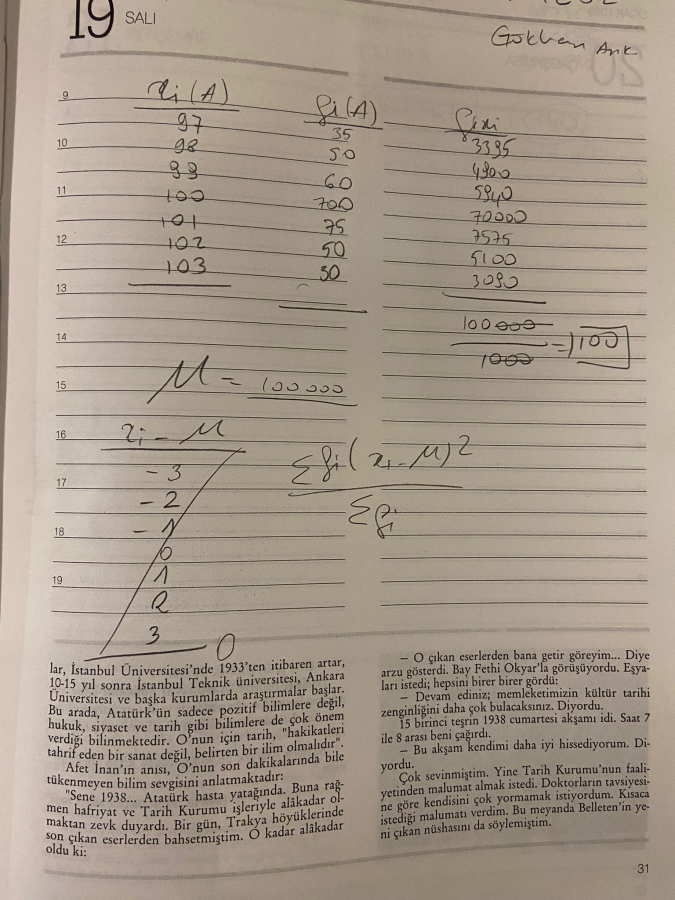 19 SALI
Gökhan Arık
9
xi (A) fi (A) fixi
97 35 3395
10
98 50 4900
99 60 5940
11
100 700 70000
101 75 7575
12
102 50 5100
103 30 3090
13
100000
14
1000
= 100
15
M = 100000
16
xi - M
-3
17
-2
-1
18
0
1
19
2
3
0
Σfi(xi - M)²
Σfi
lar, İstanbul Üniversitesi'nde 1933'ten itibaren artar,
10-15 yıl sonra İstanbul Teknik üniversitesi, Ankara
Üniversitesi ve başka kurumlarda araştırmalar başlar.
Bu arada, Atatürk'ün sadece pozitif bilimlere değil,
hukuk, siyaset ve tarih gibi bilimlere de çok önem
verdiği bilinmektedir. O'nun için tarih, "hakikatleri
tahrif eden bir sanat değil, belirten bir ilim olmalıdır".
Afet İnan'ın anısı, O'nun son dakikalarında bile
tükenmeyen bilim sevgisini anlatmaktadır:
"Sene 1938... Atatürk hasta yatağında. Buna rağ-
men hafriyat ve Tarih Kurumu işleriyle alâkadar ol-
maktan zevk duyardı. Bir gün, Trakya höyüklerinde
son çıkan eserlerden bahsetmiştim. O kadar alâkadar
oldu ki:
— O çıkan eserlerden bana getir göreyim... Diye
arzu gösterdi. Bay Fethi Okyar'la görüşüyordu. Eşya-
ları istedi; hepsini birer birer gördü:
— Devam ediniz; memleketimizin kültür tarihi
zenginliğini daha çok bulacaksınız. Diyordu.
15 birinci teşrin 1938 cumartesi akşamı idi. Saat 7
ile 8 arası beni çağırdı.
— Bu akşam kendimi daha iyi hissediyorum. Di-
yordu.
Çok sevinmiştim. Yine Tarih Kurumu'nun faali-
yetinden malumat almak istedi. Doktorların tavsiyesi-
ne göre kendisini çok yormamak istiyordum. Kısaca
istediği malumatı verdim. Bu meyanda Belleten'in ye-
ni çıkan nüshasını da söylemiştim.
31